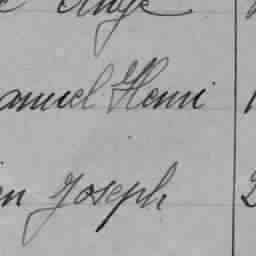 Ange
anuel Henri 1
en Joseph 2